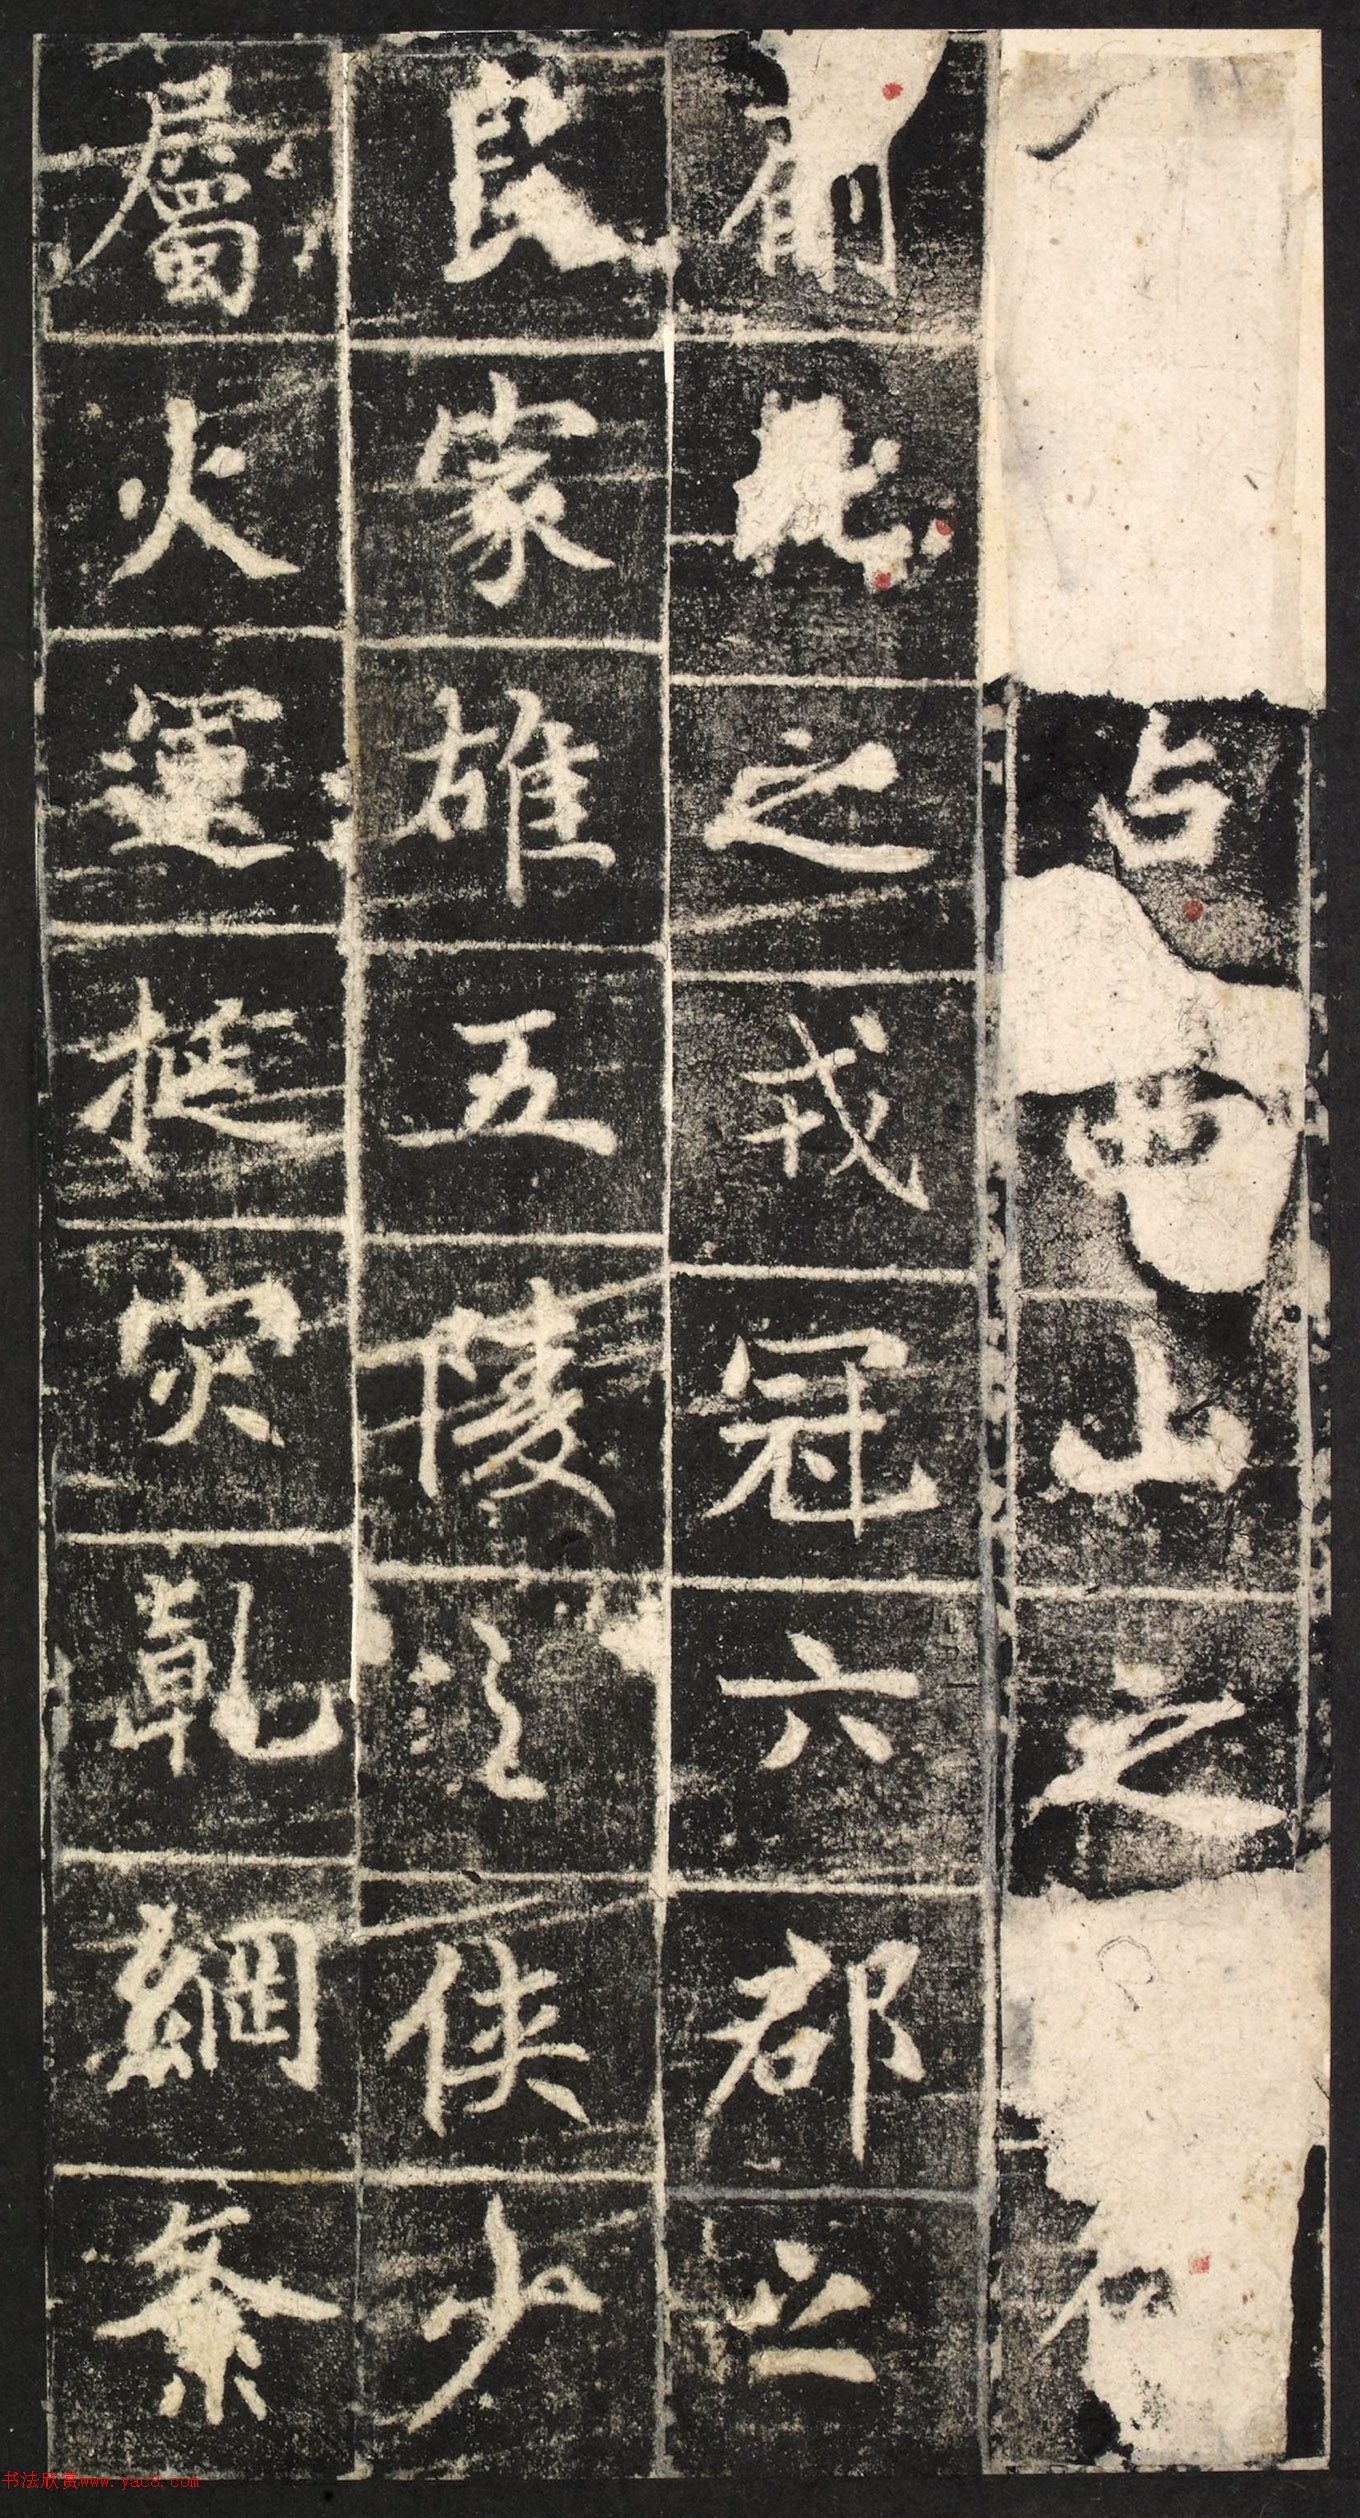 占西山之
之戎冠六郡之
良家雄五陵之侠少
屬火運挺灾乾綱紊
书法欣赏www.yac8.com